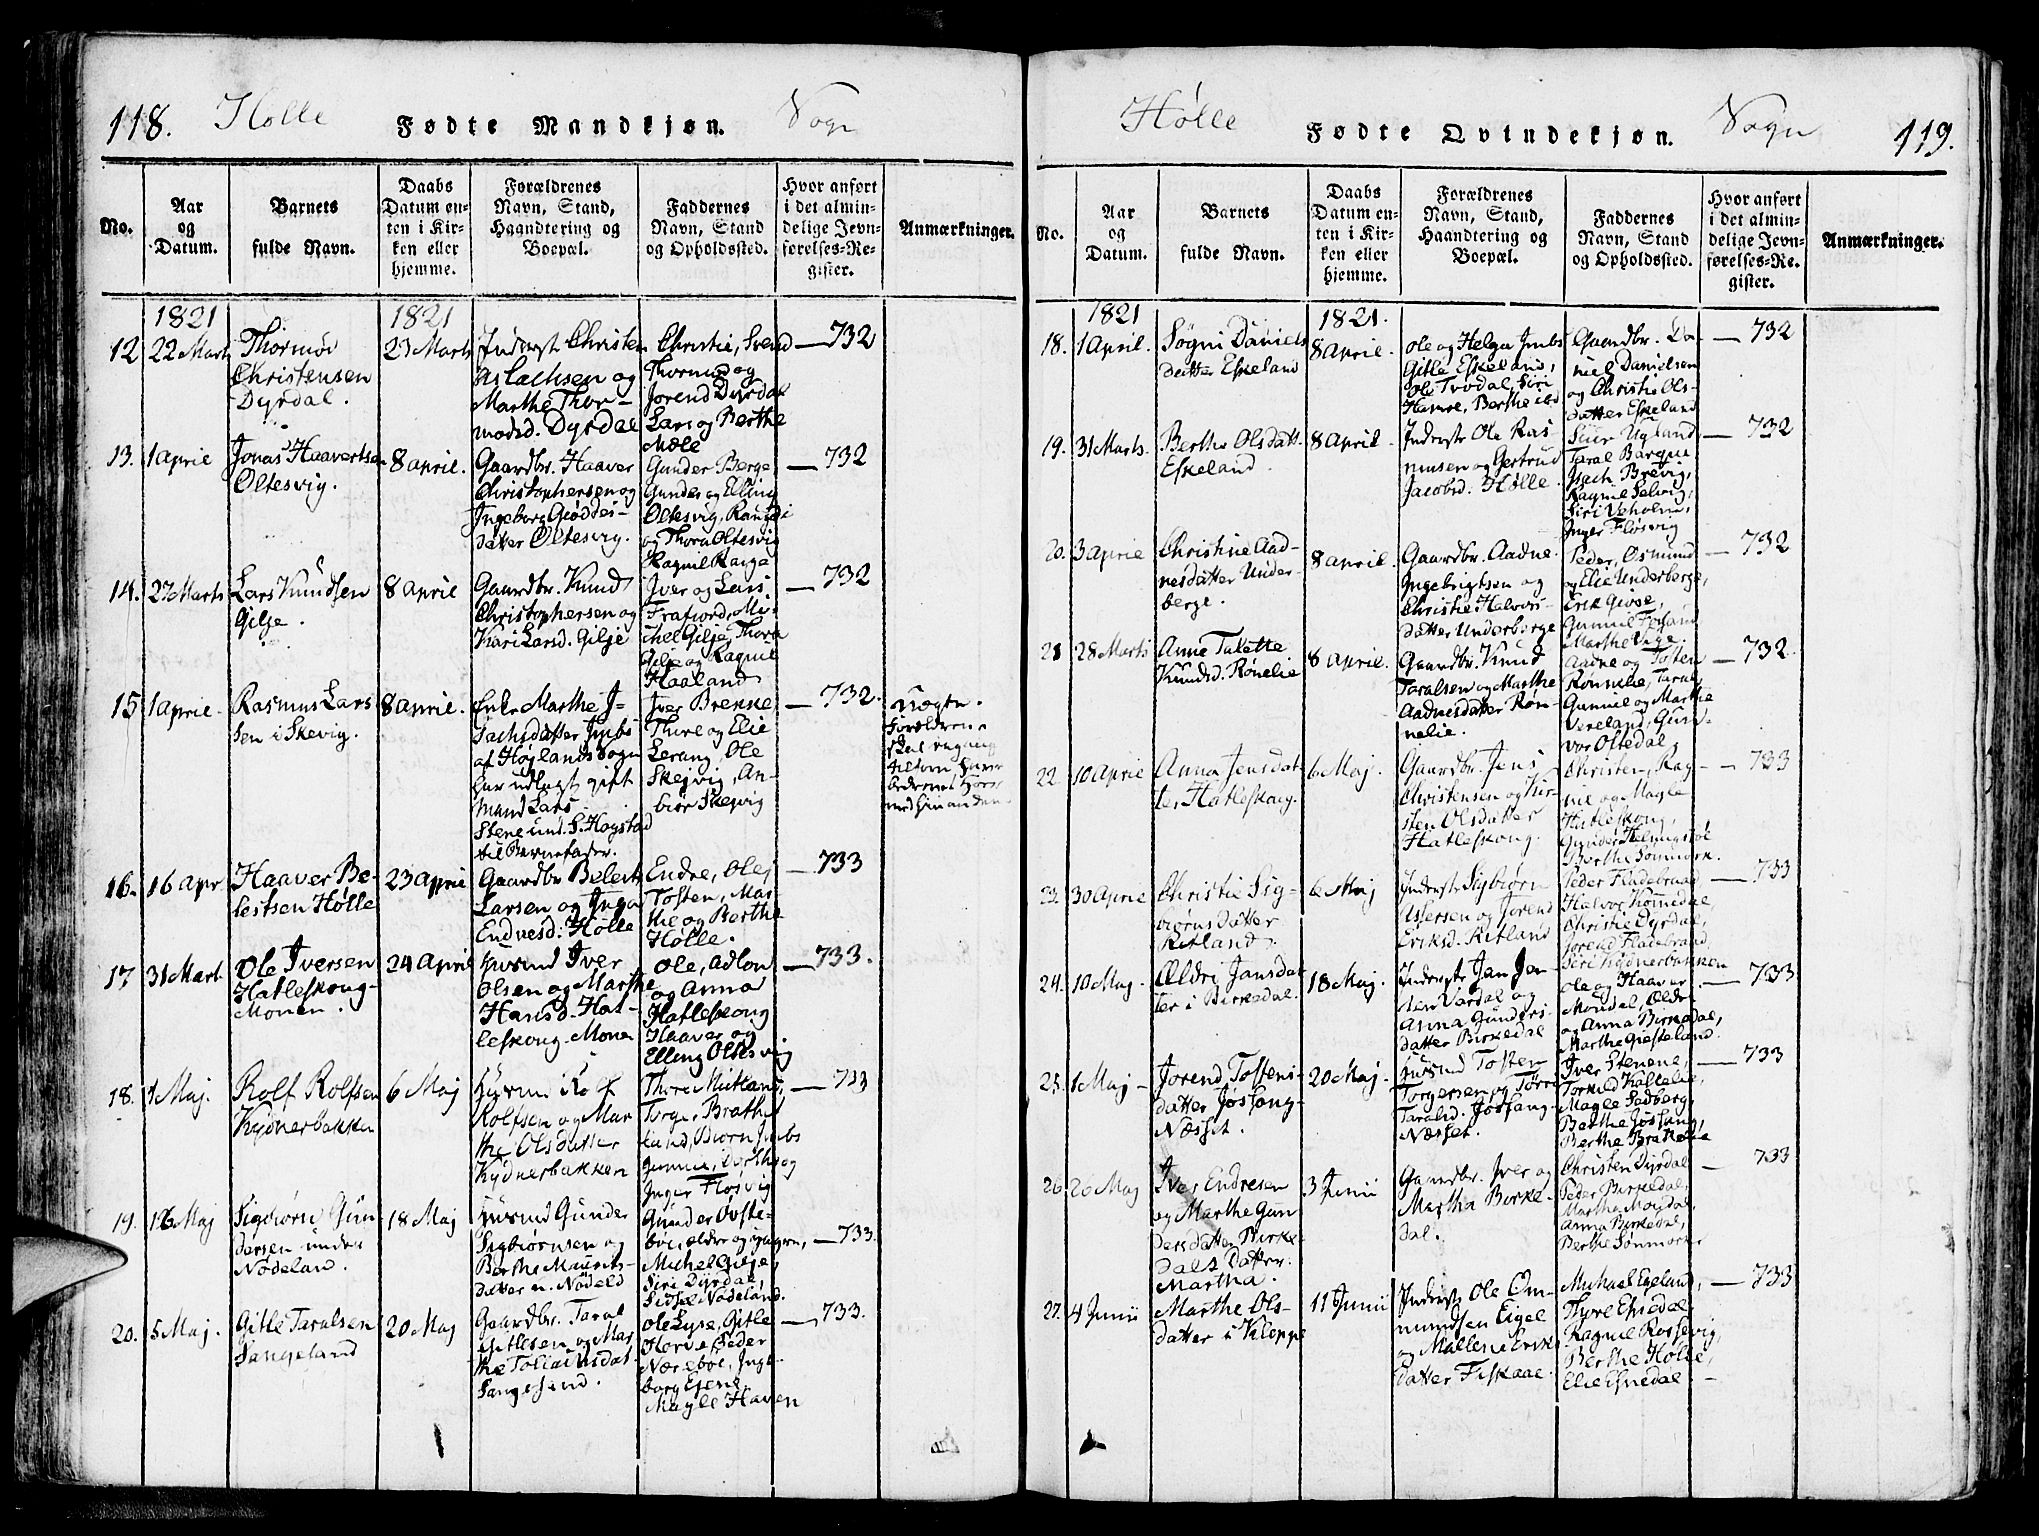 118. Hølle Fødte Mandkjøn. Sogn
No.
Aar
og
Datum.
Barnets
fulde Navn.
Daabs
Datum en-
ten i Kir-
ken eller
hjemme.
Forældrenes
Navn, Stand,
Haandtering og
Boepæl.
Faddernes
Navn, Stand
og Opholdssted.
Hvor anført
i det almin-
delige Jevn-
førelses-Re-
gister.
Anmærkninger.
1821
1821
12
22 Marts
Thormod
Christensen
Dyrdal.
23 Marts
Inderst Christen
Aslachsen og
Marthe Thor-
modsd. Dyrdal
Christie, Svend
Thormod og
Jorend Dyrdal
Lars og Berthe
Mæle
732
13.
1 april
Jonas Haavertsen
Oltesvig.
8 april.
Gaardbr. Haaver
Christophersen og
Ingeborg Giøddes-
datter Oltesvig.
Gunder Berge,
Gunder og Elling
Oltesvig, Rangdi
og Thora Oltesvig
Ragnil Hauga
732
14.
27 Marts
Lars Knudsen
Gilje.
8 april
Gaardbr. Knud
Christophersen og
Kari Larsd. Gilje
Iver og Lars
Frafiord, Mi-
chel Gilje, Thora
Gilje og Ragnil
Haaland
732
15
1 april.
Rasmus Lars
sen i Skevig.
8 april.
Enke Marthe I-
sachsdatter Imbs
af Høylands Sogn
har udlagt gift
Mand Lars
Stene und. S. Hogstad
til Barnefader.
Iver Brekke,
Thure og Elie
Lerang, Ole
Skejvig, An-
biør Skejvig
732.
Nogte.
Forældrene
med hinanden.
16.
16 apr.
Haaver Be-
lestsen Hølle
23 april
Gaardbr Belest
Larsen og Inga
Endresd. Hølle
Endre, Ole,
Tosten, Mar
the og Berthe
Hølle.
733
17
31 Mart.
Ole Iversen
Hatleskong-
Monen.
24 April
Husmd Iver
Olsen og Marthe
Hansd. Hat-
leskong-Monen
Ole, Adlon
og Anna
Hatleskong
Haaver og
Elling Oltesvig
733.
18.
1 Maj.
Rolf Rolfsen
Kydnerbakken
6 Maj
Husmd Rolf
Rolfsen og Mar
the Olsdatter
Kydnerbakken
Thore Mitland,
Torge Brathe
land, Biørn Imbs
Gunnil, Dorthe og
Inger Fløsvig
733
19.
16 Maj
Sigbiørn Gun
dersen under
Nødeland.
18 Maj
Husmd Gunder
Sigbiørnsen og
Berthe Maurits-
datter u. Nødeld
Gunder Ovste-
bøe, ældre og yngere,
Michel Gilje,
Siri Dyrdal,
Sidsel Nødeland.
733.
20.
5 Maj.
Gitle Taralsen
Sangeland
20 Maj
Gaardbr. Taral
Gitlesen og Mar
the Tollachsdat.
Sangesand.
Ole Lyse, Gitle
Horve, Peder
Næsebøe, Inge-
borg Espene
Magle Haven
733.
Hølle Fødte Qvindekjøn. Sogn 119.
No.
Aar
og
Datum.
Barnets
fulde Navn.
Daabs
Datum en-
ten i Kir-
ken eller
hjemme.
Forældrenes
Navn, Stand,
Haandtering og
Boepæl.
Faddernes
Navn, Stand
og Opholdssted.
Hvor anført
i det almin-
delige Jevn-
førelses-Re-
gister.
Anmærkninger.
1821
1821.
18.
1 April.
Søgni Daniels
datter Eskeland
8 April.
Ole og Helga Imbs
Gitle Eskeland,
Ole Trodal, Siri
Hamre, Berthe ibd
Gaardbr. Da-
niel Danielsen
og Christie Ols-
datter Eskeland
732
19.
31 Marts.
Berthe Olsdatt.
Eskeland.
8 April.
Inderstr Ole Ras
mussen og Gertrud
Jacobsd. Hølle.
Siur Ugland
Taral Barque
Isach Brevig,
Ragnil Selvig,
Siri Veholm,
Inger Fløsvig
732
20.
3 aprie
Christine Aad-
nesdatter Under-
berge.
8 april.
Gaardbr. Aadne
Ingebrigtsen og
Christie Halvors-
datter Underberge
Peder, Osmund
og Elie Underberge,
Erik Giøse,
Gunnil Fosland
Marthe Vige.
732
21
28 Marts
Anne Talette
Knudsd. Rønelie
8 april.
Gaardbr. Knud
Taralsen og Marthe
Aadnesdatter Røn-
nelie.
Aadne og Tosten
Rønnelie, Taral
Gunnil og Marthe
Vereland, Gun-
vor Oltedal
732.
22.
10 Aprie
Anna Jensdat
ter Hatleskong.
6 Maj.
Gaardbr. Jens
Christensen og Kir-
sten Olsdatter
Hatleskong.
Christen, Rag-
nil og Magle
Hatleskong,
Gunder Helmingstøl
Berthe Sønmork.
733
23.
30 Aprie
Christie Sig-
biørnsdatter
Ritland.
6 Maj
Inderstr Sigbiørn
Aslersen og Jorend
Eriksd. Ritland
Peder Fladebraad,
Halvor Tommedal,
Christie Dyrdal,
Jorend Fladebraad,
Siri Kydnerbakken
733
24.
10 Maj.
Ældri Jansdat
ter i Birkedal.
18 Maj.
Inderstr Jan Jan-
sen Vardal og
Anna Gunders-
datter Birkedal
Ole og Haaver
Mondal, Ældri
og Anna Birkedal,
Marthe Giesteland.
733
25.
1 Maj
Jorend Tosteni-
datter Jøssang-
Næsset.
20 Maj.
Husmd Tosten
Torgersen og Torri
Taralsd. Jøssang-
Næsset.
Iver Stenene,
Torkild Kallelie,
Magle Sadberg,
Berthe Jøssang,
Berthe Bratlelie
733
26.
20 Maj
Iver Endresen
og Marthe Gun
dersdatter Birke-
dals Datter:
Martha.
3 Junii
Gaardbr. Iver og
Martha Birke-
dal.
Christen Dyrdal
Peder Birkedal,
Martha Moydal,
Anna Birkedal,
Berthe Sønmork
733
27.
4 Junii
Marthe Ols-
datter i Kleppe
11 Junii
Inderst Ole Om-
mundsen Eigel
og Mallene Eriks
datter Fiskaae.
Michael Egeland,
Thyre Espedal,
Ragnil Rossevig,
Berthe Hølle,
Elie Espedal
733